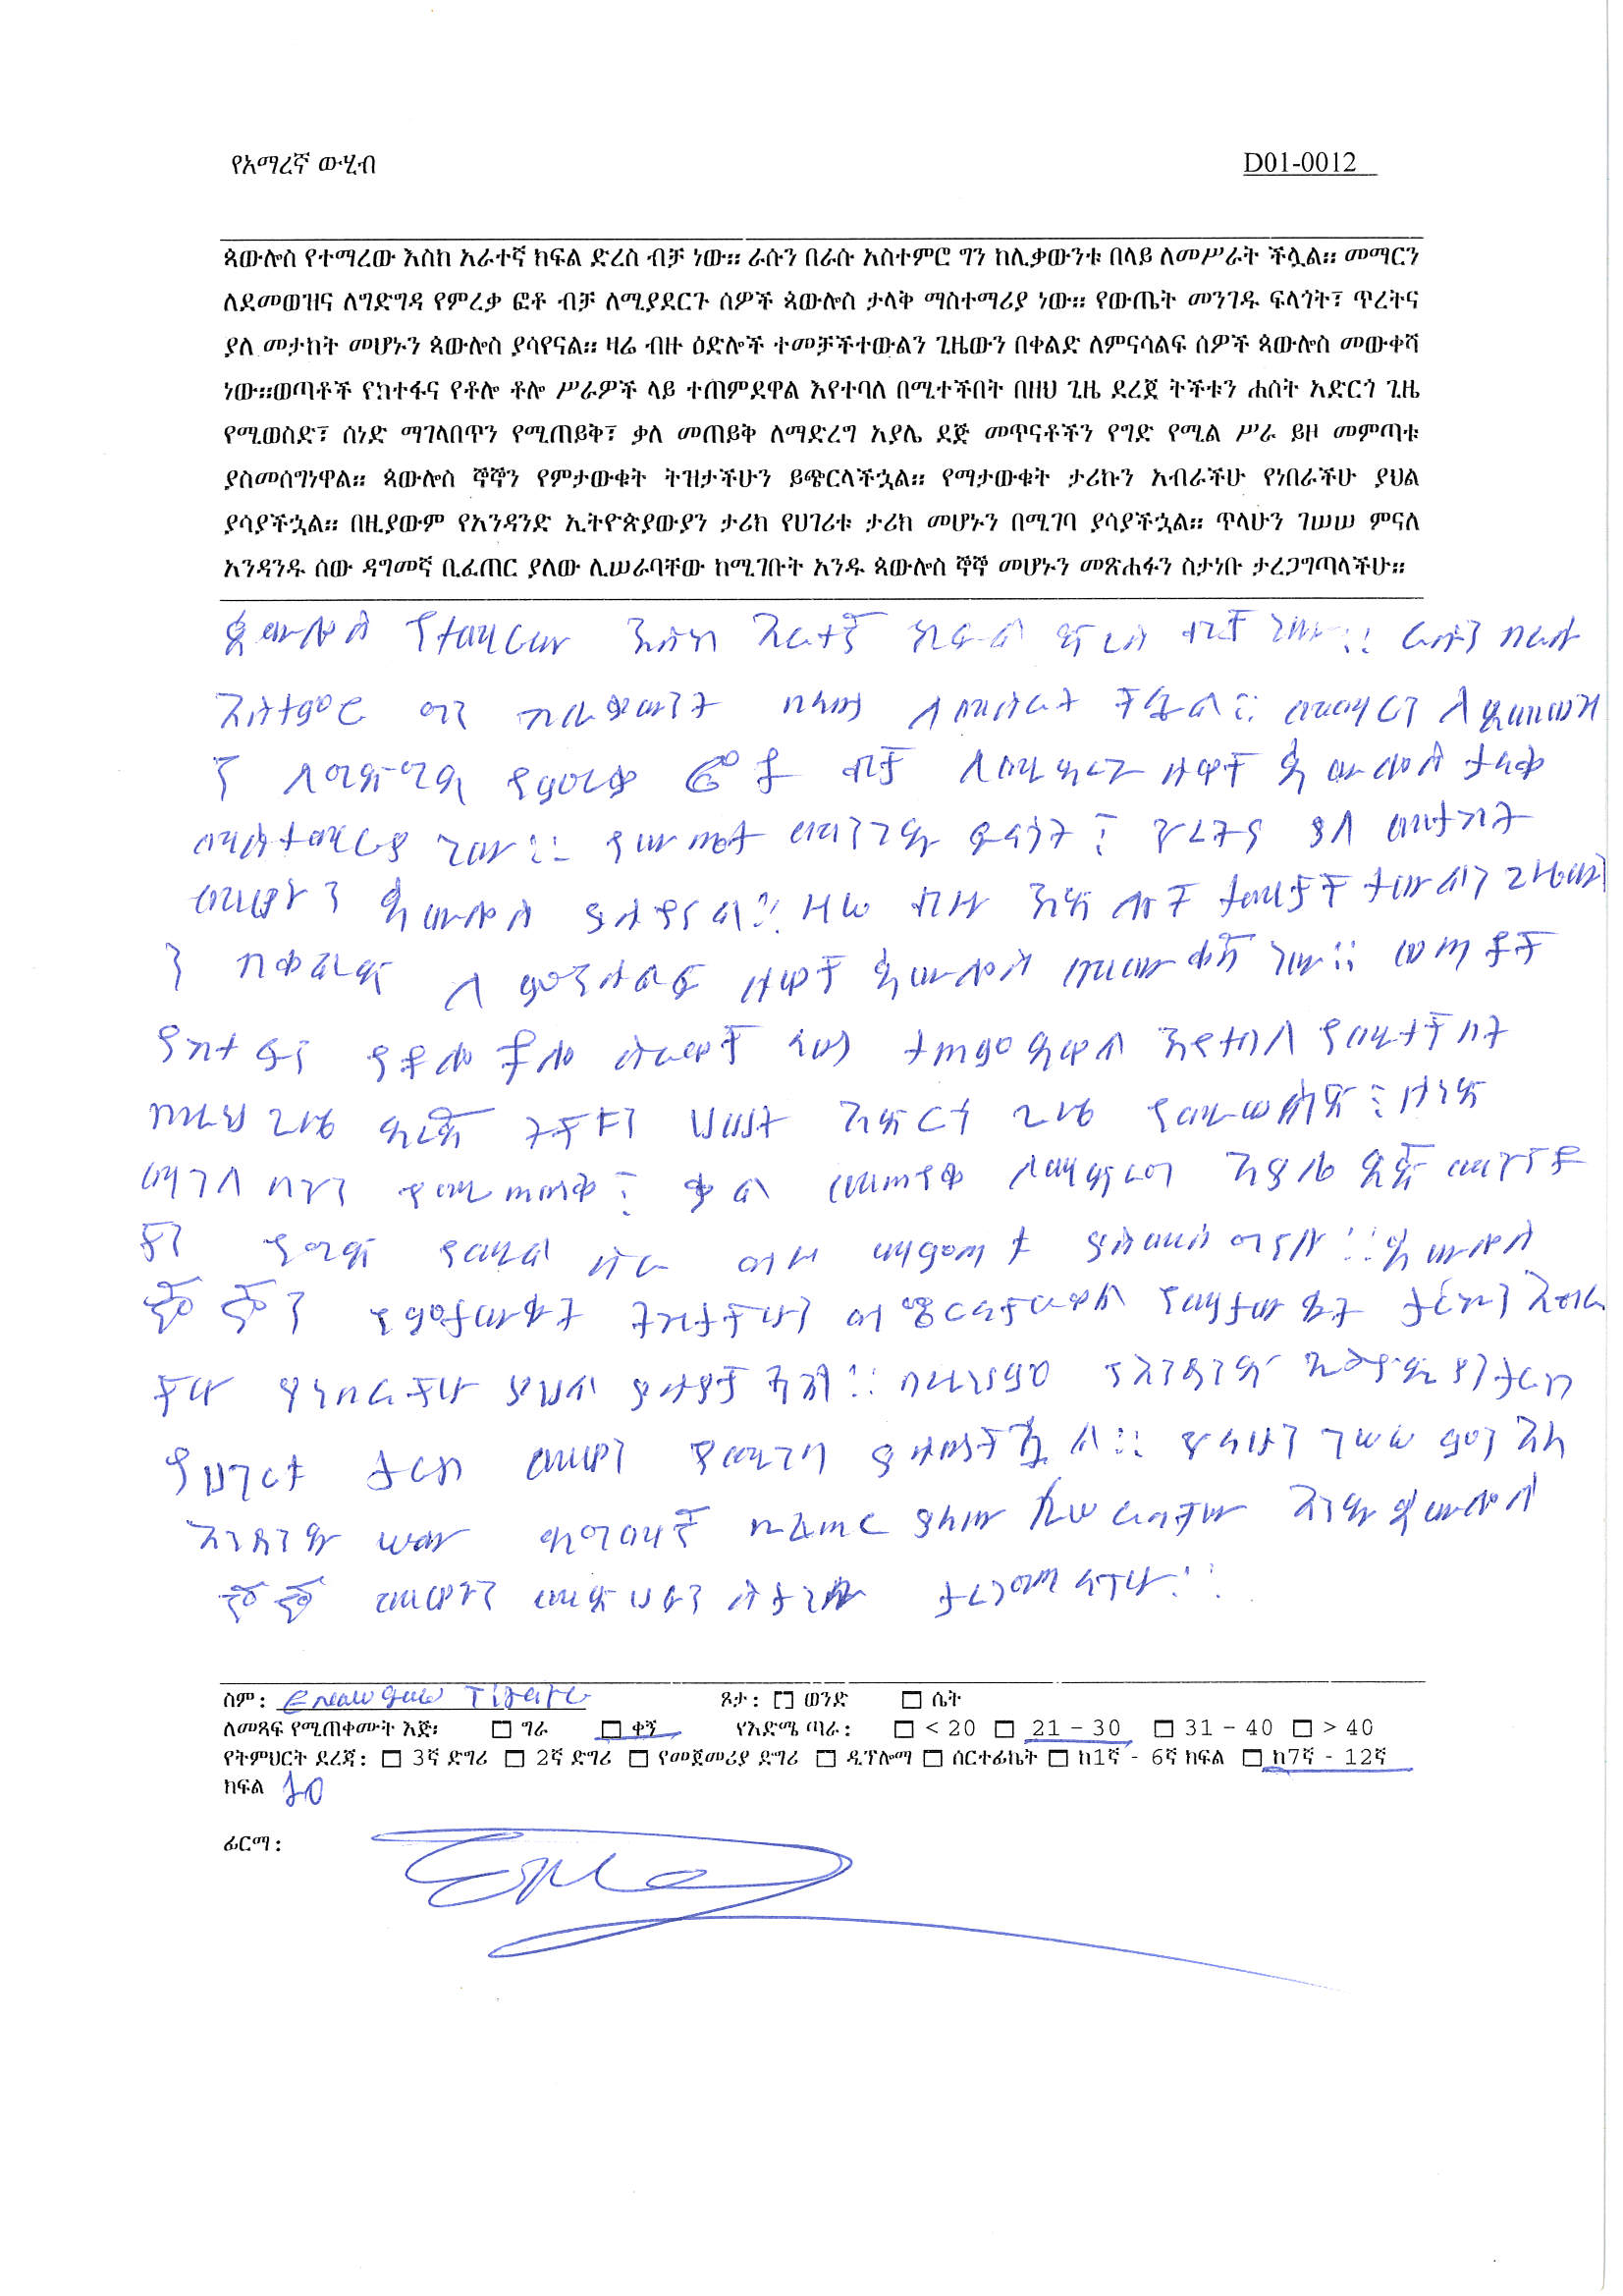 የአማረኛ ውሂብ D01-0012
ጳውሎስ የተማረው እስከ አራተኛ ክፍል ድረስ ብቻ ነው። ራሱን በራሱ አስተምሮ ግን ከሊቃውንቱ በላይ ለመሥራት ችሏል። መማርን
ለደመወዝና ለግድግዳ የምረቃ ፎቶ ብቻ ለሚያደርጉ ሰዎች ጳውሎስ ታላቅ ማስተማሪያ ነው። የውጤት መንገዱ ፍላጎት፣ ጥረትና
ያለ መታከት መሆኑን ጳውሎስ ያሳየናል። ዛሬ ብዙ ዕድሎች ተመቻችተውልን ጊዜውን በቀልድ ለምናሳልፍ ሰዎች ጳውሎስ መውቀሻ
ነው።ወጣቶች የከተፋና የቶሎ ቶሎ ሥራዎች ላይ ተጠምደዋል እየተባለ በሚተችበት በዘህ ጊዜ ደረጀ ትችቱን ሐሰት አድርጎ ጊዜ
የሚወስድ፣ ሰነድ ማገላበጥን የሚጠይቅ፣ ቃለ መጠይቅ ለማድረግ አያሌ ደጅ መጥናቶችን የግድ የሚል ሥራ ይዞ መምጣቱ
ያስመሰግነዋል። ጳውሎስ ኞኞን የምታውቁት ትዝታችሁን ይጭርላችኋል። የማታውቁት ታሪኩን አብራችሁ የነበራችሁ ያህል
ያሳያችኋል። በዚያውም የአንዳንድ ኢትዮጵያውያን ታሪክ የሀገሪቱ ታሪክ መሆኑን በሚገባ ያሳያችኋል። ጥላሁን ገሠሠ ምናለ
አንዳንዱ ሰው ዳግመኛ ቢፈጠር ያለው ሊሠራባቸው ከሚገቡት አንዱ ጳውሎስ ኞኞ መሆኑን መጽሐፉን ስታነቡ ታረጋግጣላችሁ።
ጳውሎስ የተማረው እስከ አራተኛ ክፍል ድረስ ብቻ ነው። ራሱን በራሱ
አስተምሮ ግን ከሊቃውንት በላይ ለመስራት ችሏል። መማርን ለደመወዝ
ን ለግድግዳ የምረቃ ፎቶ ብቻ ለሚያደርጉ ሰዎች ጳውሎስ ታላቅ
ማስተማርያ ነው። የውጤት መንገዱ ፍላጎት፣ ጥረትና ያለ መታከት
መሆኑን ጳውሎስ ያሳየናል። ዛሬ ብዙ እድሎች ተመቻችተውልን ጊዜውን
ን በቀልድ ለምናሳልፍ ሰዎች ጳውሎስ መውቀሻ ነው። ወጣቶች
የከተፋን የቶሎ ቶሎ ስራዎች ላይ ተጠምዷዋል እየተባለ የሚተችበት
በዚህ ጊዜ ደረጀ ትችቱን ሀሠት አድርጎ ጊዜ የሚወስድ፣ ሰነድ
ማገላበጥን የሚጠይቅ፣ ቃለ መጠይቅ ለማድረግ አያሌ ደጅ መጥናቶ
ችን የግድ የሚል ስራ ይዞ ማምጣቱ ያስመሰግናል። ጳውሎስ
ኞኞን የምታውቁት ትዝታችሁን የማታውቁት ታሪኩን አብራ
ችሁ የነበራችሁ ያህል
የሀገሪቱ ታሪክ መሆኑን በሚገባ ያሳያችኋል። ጥላሁን ገሠሠ ምን አለ
አንዳንዱ ሠው ዳግማኛ ቢፈጠር ያለው ሊሠራባቸው አንዱ ጳውሎስ
ኞኞ መሆኑን መጽሀፉን ስታነቡ ታረጋግጣላችሁ።
ስም: ጾታ: ወንድ ሴት
ለመጻፍ የሚጠቀሙት እጅ፡ ግራ ቀኝ የእድሜ ጣራ: < 20 21 – 30 31 – 40 > 40
የትምህርት ደረጃ: 3ኛ ድግሪ 2ኛ ድግሪ የመጀመሪያ ድግሪ ዲፕሎማ ሰርተፊኬት ከ1ኛ - 6ኛ ክፍል ከ7ኛ - 12ኛ
ክፍል 10
ፊርማ: